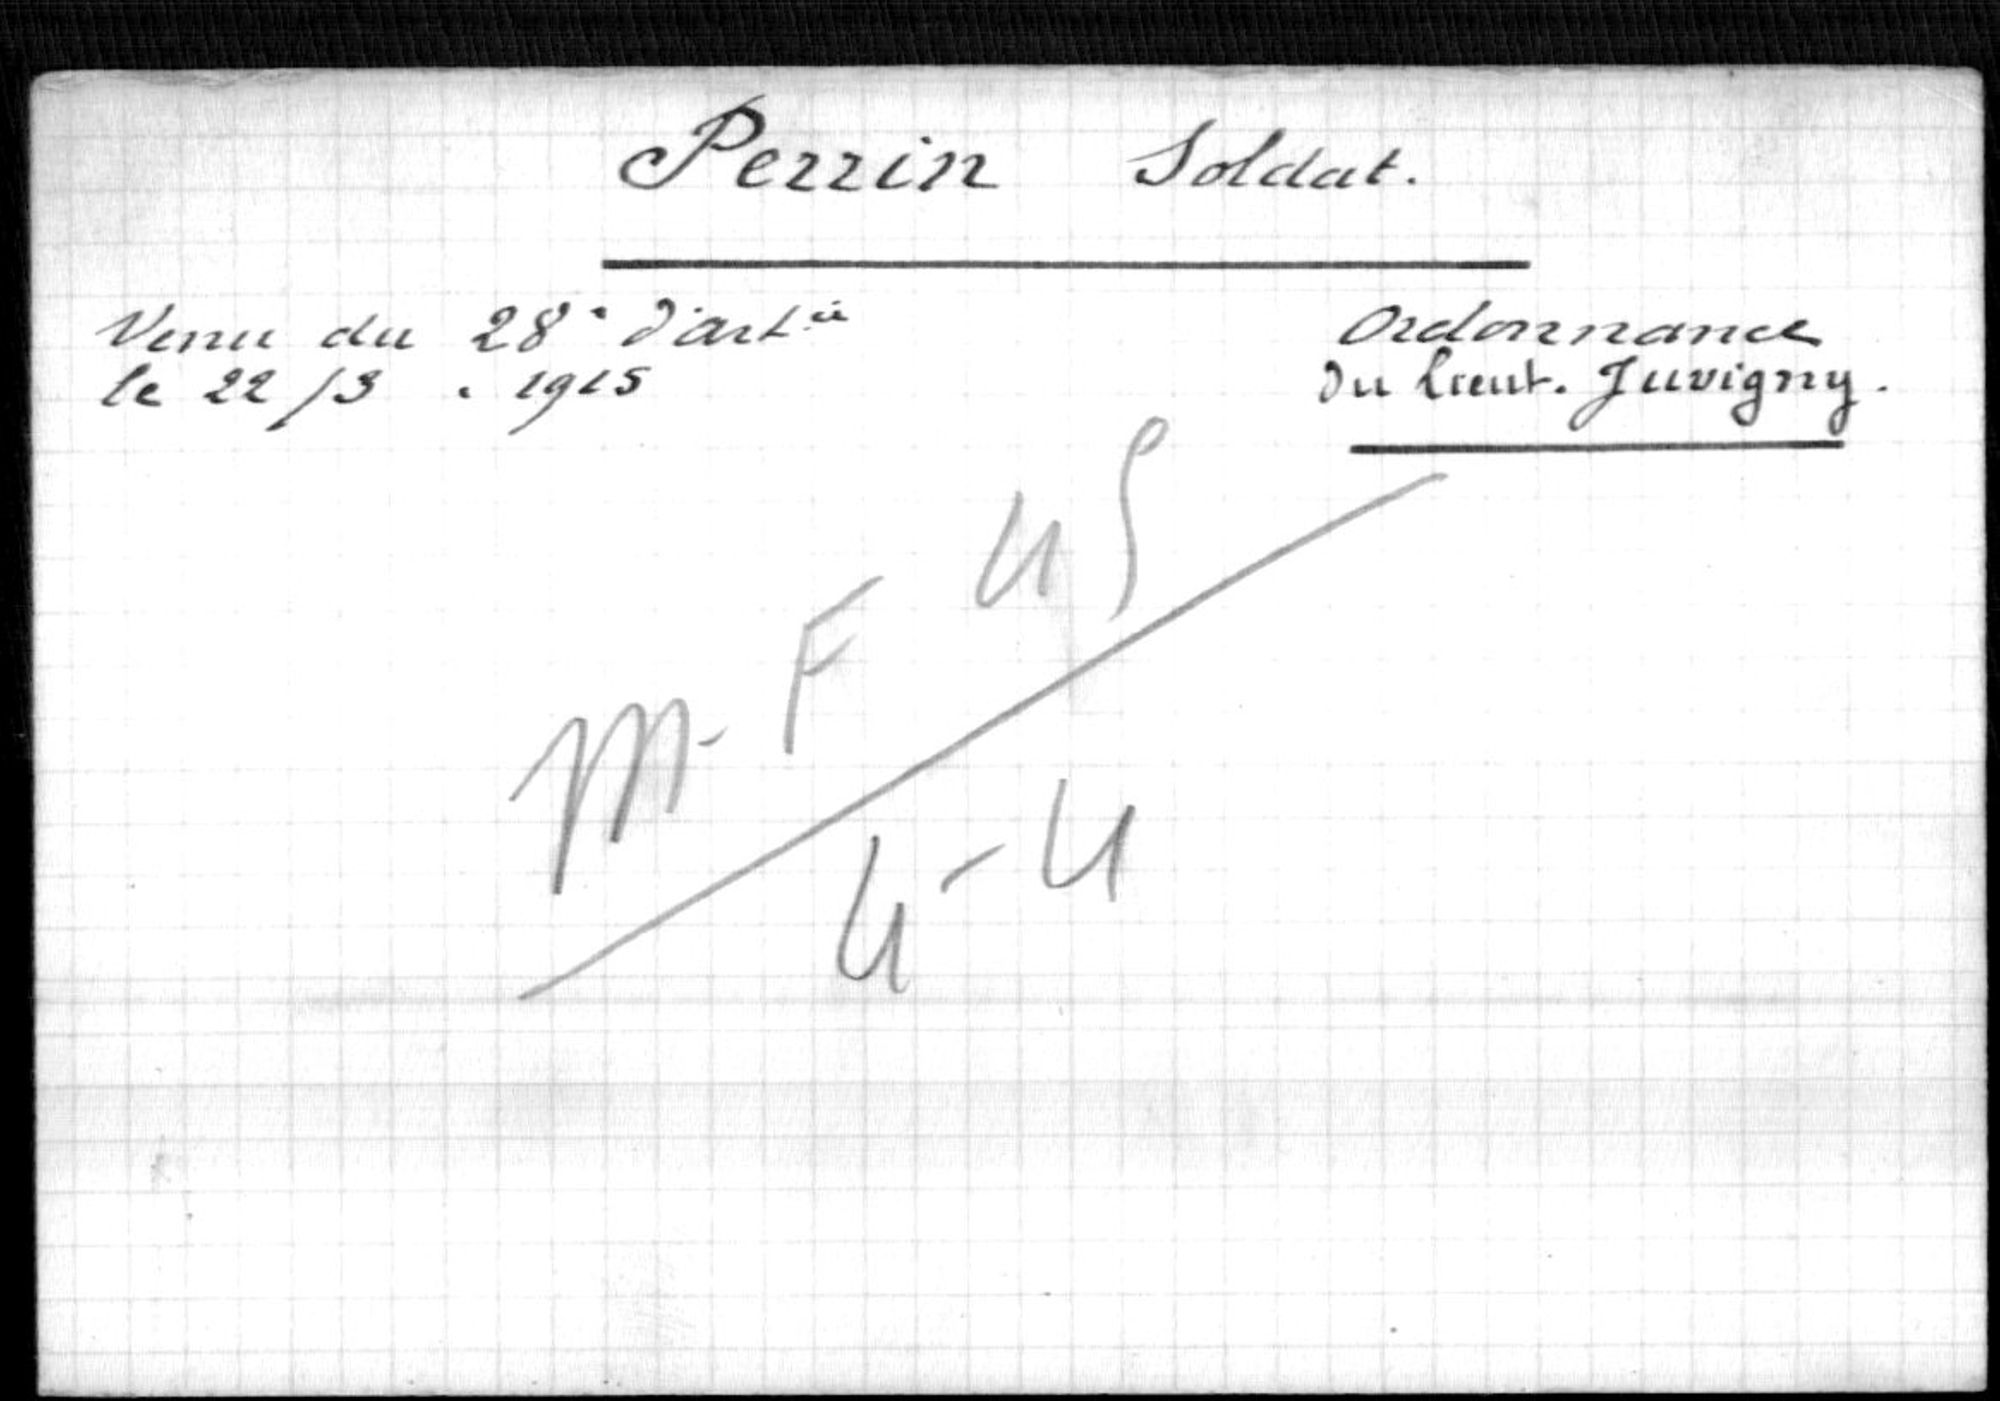 Perrin Soldat.
Venu du 28e d'artie
le 22/3 . 1915
Ordonnance
du Lieut. Juvigny.
M-F 45
4-4